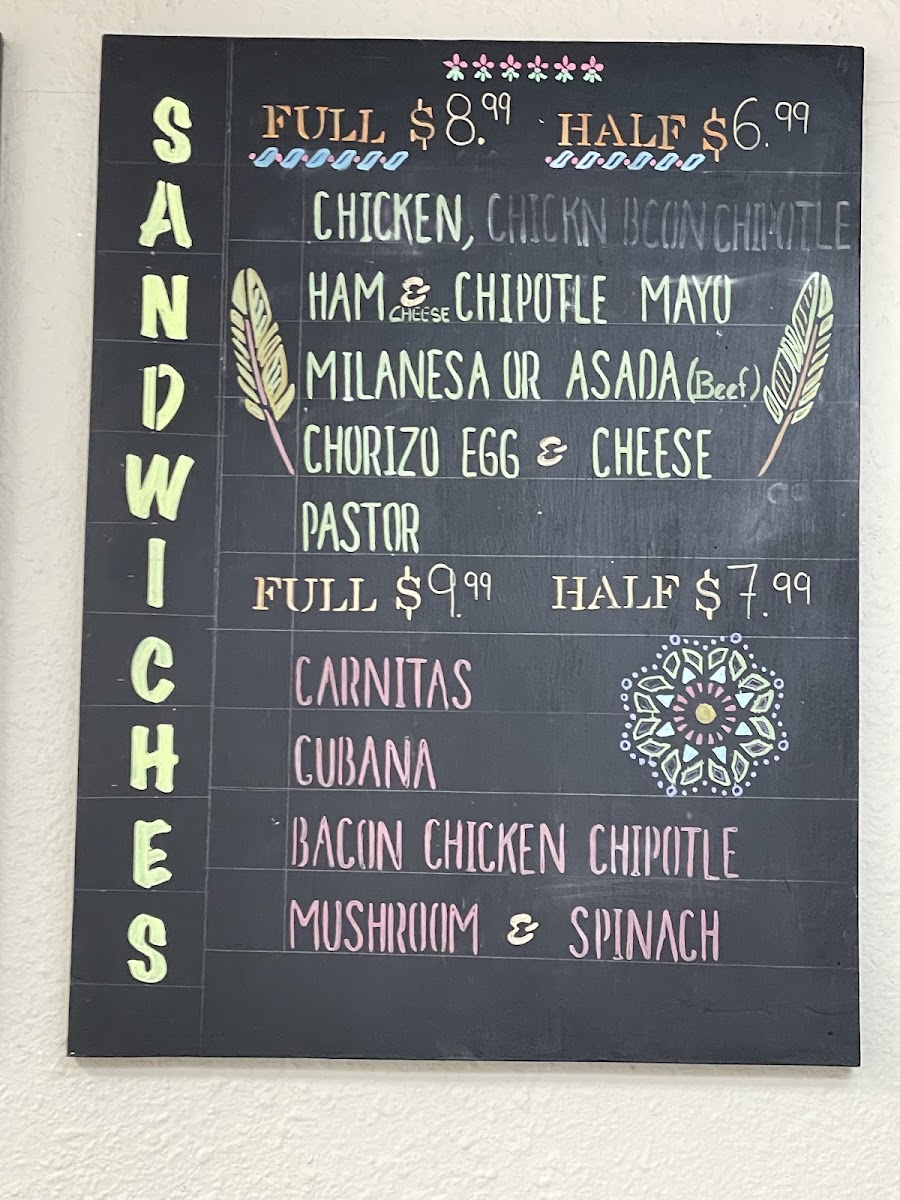 SANDWICHES
FULL $8.99 HALF $6.99
CHICKEN, CHICKN BCON CHIPOTLE
HAM & CHEESE CHIPOTLE MAYO
MILANESA OR ASADA (Beef)
CHORIZO EGG & CHEESE
PASTOR
FULL $9.99 HALF $7.99
CARNITAS
CUBANA
BACON CHICKEN CHIPOTLE
MUSHROOM & SPINACH